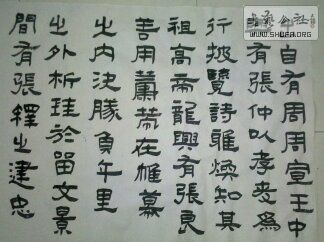 自有周周宣王中
興有張仲以孝友為
行披覽詩雅煥知其
祖高帝龍興有張良
善用籌策在帷幕
之內決勝負千里
之外析珪於留文景
間有張釋之建忠
公社
WWW.SHUFA.ORG